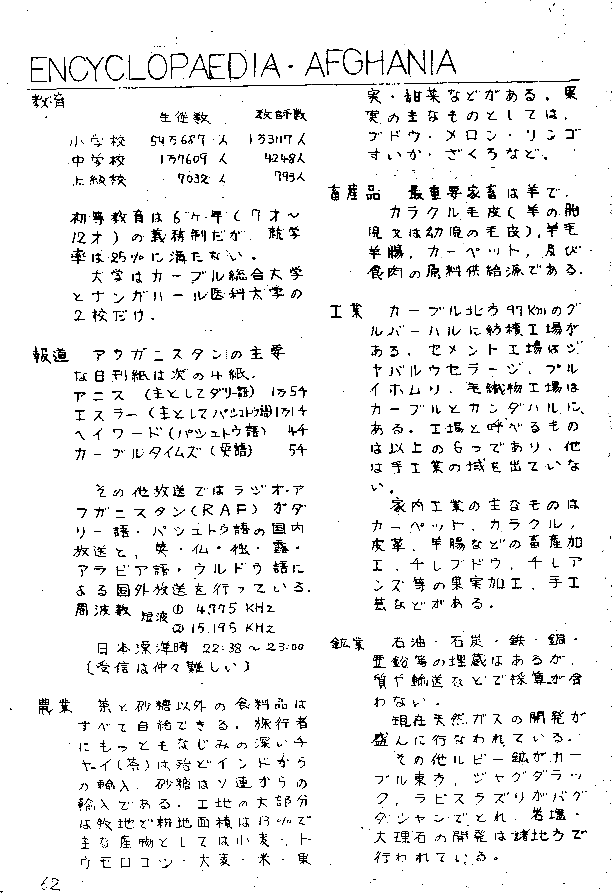 ENCYCLOPAEDIA・AFGHANIA
教育
生徒数 教師数
小学校 54万687人 1万3117人
中学校 1万7609人 4248人
上級校 7032人 793人
初等教育は6ヶ年(7才〜
12才)の義務制だが、就学
率は25%に満たない。
大学はカーブル総合大学
とナンガハール医科大学の
2校だけ。
報道 アフガニスタンの主要
な日刊紙は次の4紙。
アニス (主としてダリー語) 1万5千
エスラー(主としてパシュトウ語)1万1千
ヘイワード(パシュトウ語) 4千
カーブルタイムズ(英語) 5千
その他放送ではラジオ・ア
フガニスタン(RAF)がダ
リー語・パシュトウ語の国内
放送と、英・仏・独・露・
アラビア語・ウルドウ語に
よる国外放送を行っている。
周波数 短波 ① 4.775 KHz
② 15.195 KHz
日本深洋時 22:38〜23:00
(受信は仲々難しい)
農業 茶と砂糖以外の食料品は
すべて自給できる。旅行者
にもっともなじみの深いチ
ャイ(茶)は殆どインドから
の輸入、砂糖はソ連からの
輸入である。土地の大部分
は牧地で耕地面積は13%で
主な産物としては小麦・ト
ウモロコシ・大麦・米・果
実・甜菜などがある。果
実の主なものとしては、
ブドウ・メロン・リンゴ
すいか・ざくろなど。
畜産品 最重要家畜は羊で、
カラクル毛皮(羊の胎
児又は幼児の毛皮)、羊毛
羊腸、カーペット、及び
食肉の原料供給源である。
工業 カーブル北方97Kmのグ
ルバーハルに紡積工場が
ある。セメント工場はジ
ャバルウセラージ、プル
イホムリ、毛織物工場は
カーブルとカンダハルに、
ある。工場と呼べるもの
は以上の6つであり、他
は手工業の域を出ていな
い。
家内工業の主なものは
カーペット、カラクル、
皮革、羊腸などの畜産加
工、干しブドウ、干しア
ンズ等の果実加工、手工
芸などがある。
鉱業 石油・石炭・鉄・銅・
亜鉛等の埋蔵はあるが、
質や輸送などで採算が合
わない。
現在天然ガスの開発が
盛んに行なわれている。
その他ルビー鉱がカー
ブル東方、ジャグダラッ
ク、ラピスラズリがバダ
クシャンでとれ、岩塩・
大理石の開発は諸地方で
行われている。
62